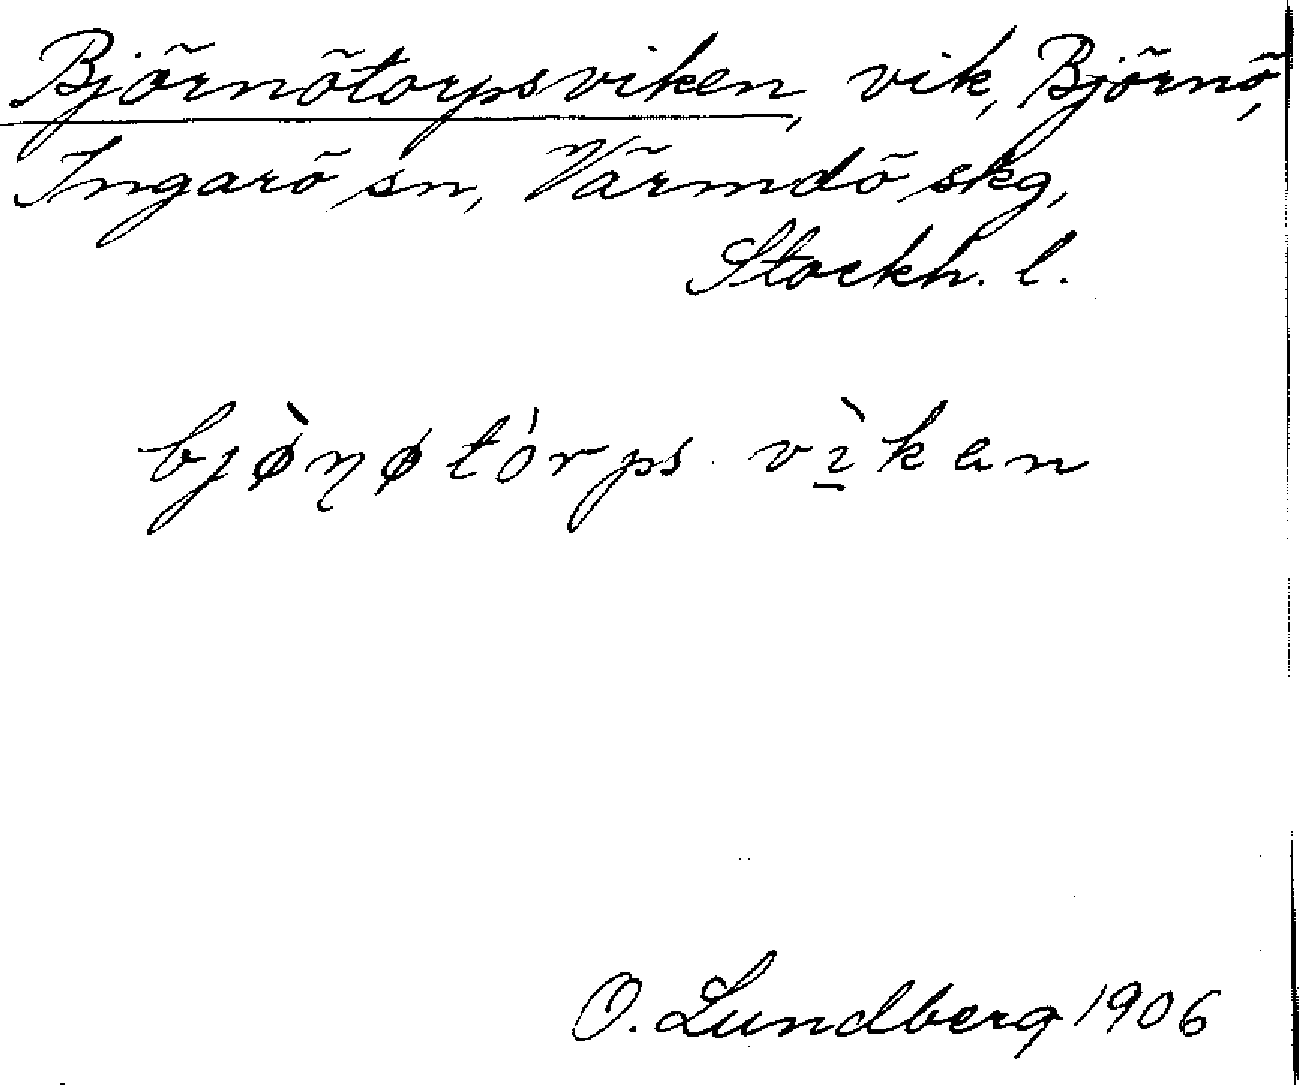 Björnötorpsviken, vik, Björnö,
Ingarö sn, Värmdö skg,
Stockh. l.
bjø̀ŋøtórps vì̲ken
O. Lundberg 1906